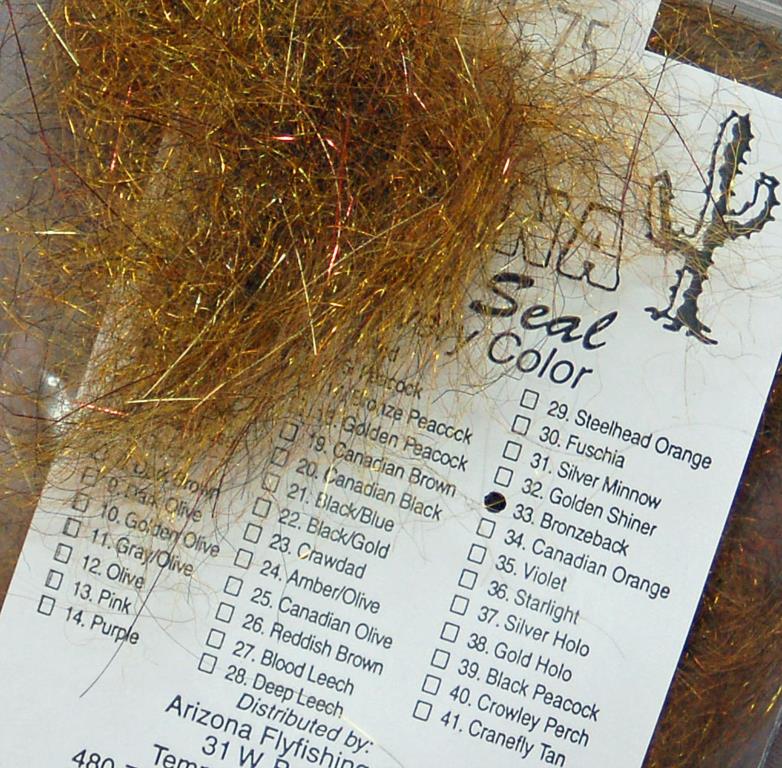 75
NA
Seal
Color
Peacock
Bronze Peacock
18. Golden Peacock
19. Canadian Brown
20. Canadian Black
21. Black/Blue
22. Black/Gold
23. Crawdad
24. Amber/Olive
25. Canadian Olive
26. Reddish Brown
27. Blood Leech
28. Deep Leech
Brown
9. Dark Olive
10. Golden Olive
11. Gray/Olive
12. Olive
13. Pink
14. Purple
29. Steelhead Orange
30. Fuschia
31. Silver Minnow
32. Golden Shiner
33. Bronzeback
34. Canadian Orange
35. Violet
36. Starlight
37. Silver Holo
38. Gold Holo
39. Black Peacock
40. Crowley Perch
41. Cranefly Tan
Distributed by:
Arizona Flyfishing
31 W.
480